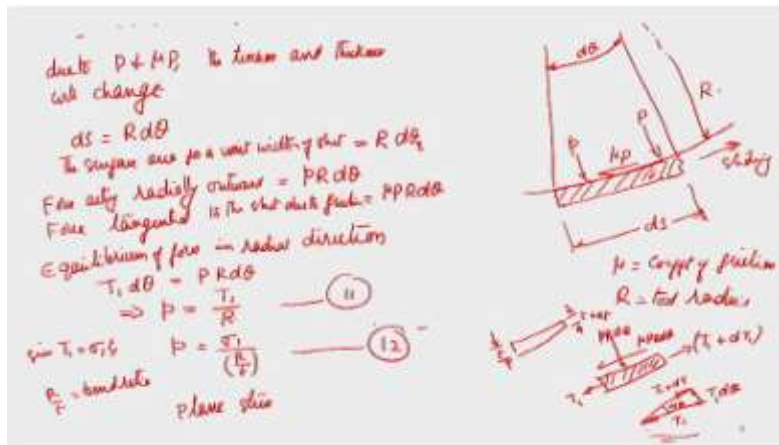 due to P & μP, the tension and thickness
will change
ds = R dθ
The surface area for a unit width of sheet = R dθ
Force acting radially outward = PR dθ
Force tangential to the sheet due to friction = μPR dθ
Equilibrium of forces in radial direction
T₁ dθ = P R dθ
⇒ p = T₁/R — (11)
since T₁ = σ₁t
p = σ₁/(R/t) — (12)
R/t = bend ratio
Plane
dθ
R
P
P
μP
sliding
ds
μ = coeff of friction
R = tool radius
PRdθ
μPRdθ
(T₁ + dT₁)
T₁
dθ
T₁dθ
T₁